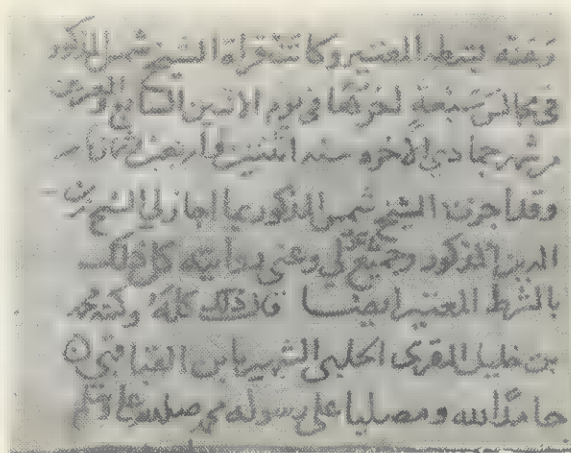 وعنه بشرطه المعتبر وكانت قراءة الشيخ شمس الدين المذكور
في مجالس سبعة اخرها في يوم الاثنين السابع والعشرين
من شهر جمادى الاخره سنه اثنتين واربعين وثمانمايه
وقد اجزت الشيخ شمس الدين المذكور بما اجاز لي الشيخ زين
الدين المذكور وجميع ما لي وعني روايته كل ذلك
بالشرط المعتبر ايضا قال ذلك كله وكتبه محمد
بن خليل المقرى الحلبي الشهير بابن القباقبي
حامدا لله ومصليا على رسوله محمد صلى الله عليه وسلم